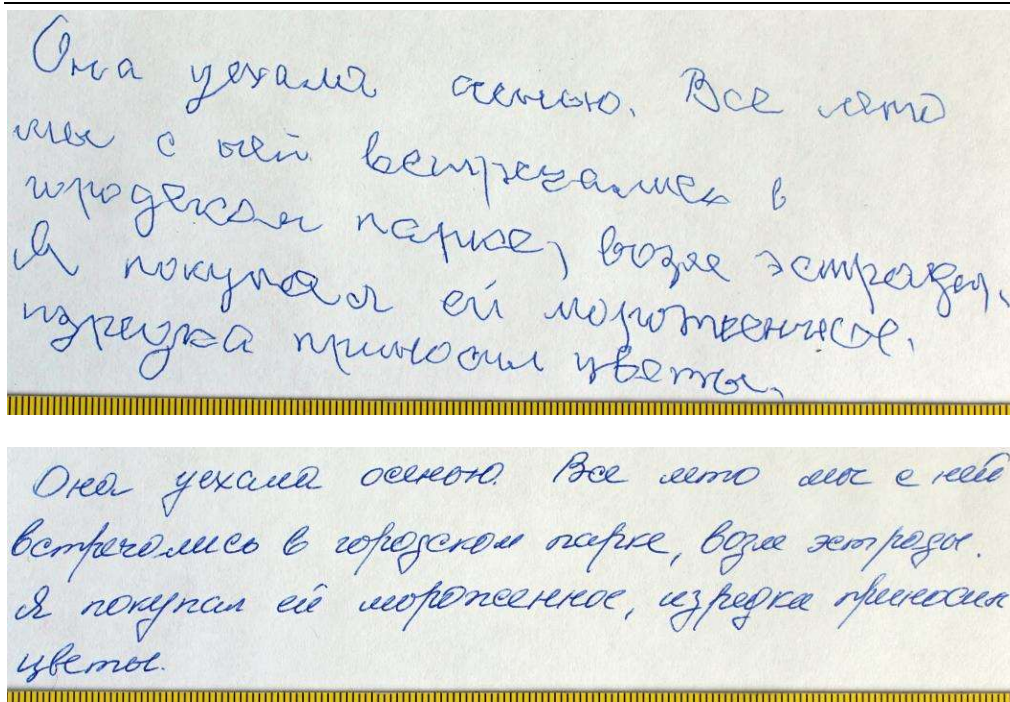 Она уехала осенью. Все лето
мы с ней встречались в
городском парке, возле эстрады.
Я покупал ей мороженное,
изредка приносил цветы.
Она уехала осенью. Все лето мы с ней
встречались в городском парке, возле эстрады.
Я покупал ей мороженное, изредка приносил
цветы.